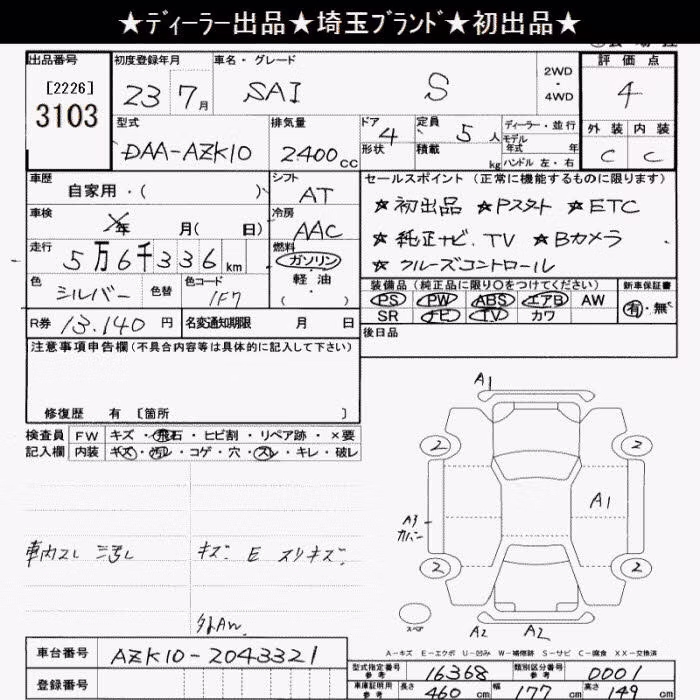 ★ディーラー出品★埼玉ブランド★初出品★
出品番号 初度登録年月 車名・グレード 評価点
[2226]
3103
23 7月 SAI S 2WD・4WD 4
型式 排気量 ドア 4 定員 5人 ディーラー・並行 外装 内装
DAA-AZK10 2400cc 形状 積載 kg モデル年式 年 ハンドル 左・右 C C
車歴 シフト セールスポイント(正常に機能するものに限ります)
自家用・( ) AT ★初出品 ★Pスタート ★ETC
車検 年 月( 日) 冷房 AAC ★純正ナビ、TV ★Bカメラ
走行 5万6千336km 燃料 ガソリン・軽油・( ) ★クルーズコントロール
色 シルバー 色替 色コード 1F7
装備品(純正品に限り○をつけてください) 新車保証書
PS PW ABS エアB AW 有・無
SR ナビ TV カワ
R券 13.140円 名変通知期限 月 日 後日品
注意事項申告欄(不具合内容等は具体的に記入して下さい)
修復歴 有 [箇所 ]
検査員 FW キズ・飛石・ヒビ割・リペア跡・×要
記入欄 内装 キズ・汚レ・コゲ・穴・スレ・キレ・破レ
車内スレ 汚レ キズ E スリキズ
外AW
A1
2 2
A1
A3
カバー
2 2
スペア A2 A2
A-キズ E-エクボ U-凹み W-補修跡 S-サビ C-腐食 XX-交換済
車台番号 AZK10-2043321
登録番号
型式指定番号 参考 16368 類別区分番号 参考 0001
車庫証明用 参考 長さ 460cm 幅 177cm 高さ 149cm